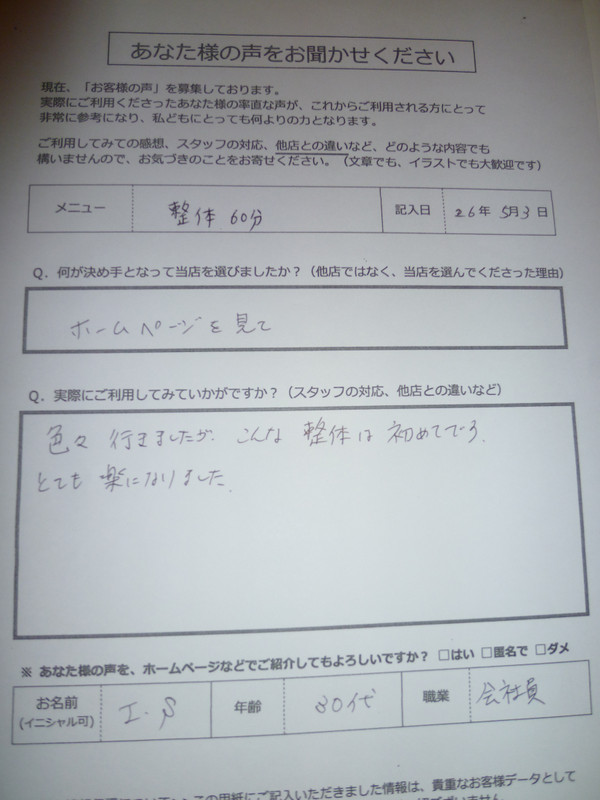 あなた様の声をお聞かせください
現在、「お客様の声」を募集しております。
実際にご利用くださったあなた様の率直な声が、これからご利用される方にとって
非常に参考になり、私どもにとっても何よりの力となります。
ご利用してみての感想、スタッフの対応、他店との違いなど、どのような内容でも
構いませんので、お気づきのことをお寄せください。（文章でも、イラストでも大歓迎です）
メニュー 整体 60分 記入日 26年 5月3日
Q．何が決め手となって当店を選びましたか？（他店ではなく、当店を選んでくださった理由）
ホームページを見て
Q．実際にご利用してみていかがですか？（スタッフの対応、他店との違いなど）
色々 行きましたが こんな 整体は 初めてです．
とても 楽になりました．
※ あなた様の声を、ホームページなどでご紹介してもよろしいですか？ □はい □匿名で □ダメ
お名前 I.S 年齢 30代 職業 会社員
(イニシャル可)
この用紙にご記入いただきました情報は、貴重なお客様データとして
ございません